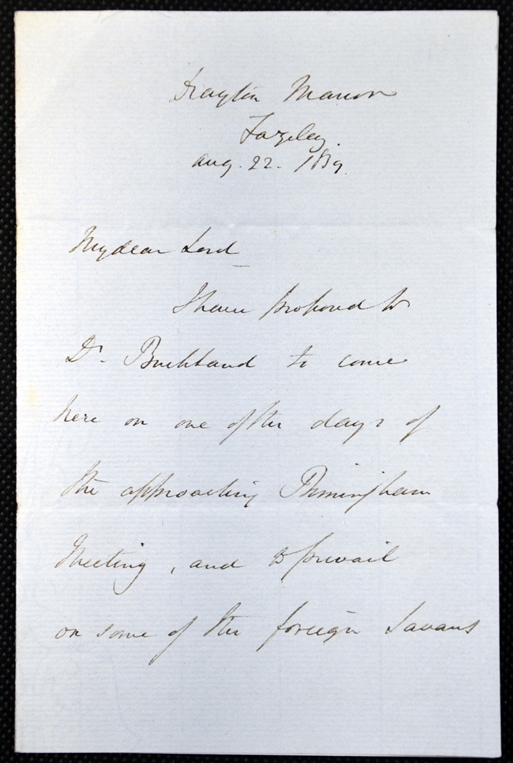 Drayton Manor
Fazeley.
Aug. 22. 1839.
My dear Lord
I have proposed to
Dr. Buckland to come
here on one of the days of
the approaching Birmingham
Meeting, and to prevail
on some of the foreign Savans